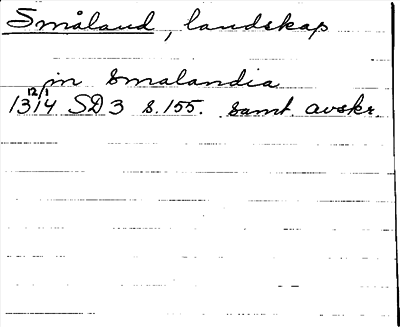 Småland, landskap
in Smalandia
12/1
1314 SD 3 s. 155. Samt. avskr.